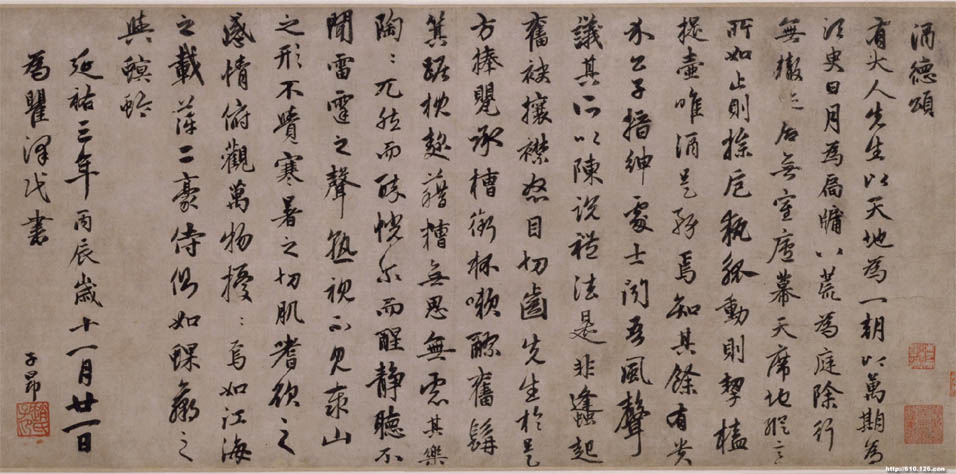 酒德頌
有大人先生以天地為一朝以萬期為
須臾日月為扃牖八荒為庭除行
無轍迹居無室廬幕天席地縱意
所如止則操卮執觚動則挈榼
提壺唯酒是務焉知其餘有貴
介公子搢紳處士聞吾風聲
議其所以陳說禮法是非蠭起
奮袂攘襟怒目切齒先生於是
方捧甖承槽銜杯嗽醪奮髯
箕踞枕麴藉糟無思無慮其樂
陶〻兀然而醉恍尔而醒静聽不
聞雷霆之聲熟視不見泰山
之形不覺寒暑之切肌嗜欲之
感情俯觀萬物擾〻焉如江海
之載萍二豪侍側如蜾蠃之
與螟蛉
延祐三年丙辰歲十一月廿一日
為瞿澤民書
子昂
趙氏子昂
http://610.126.com